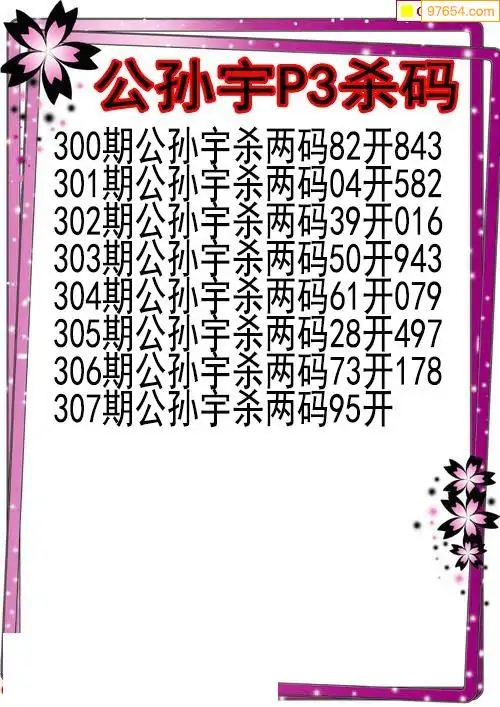 97654.com
公孙宇P3杀码
300期公孙宇杀两码82开843
301期公孙宇杀两码04开582
302期公孙宇杀两码39开016
303期公孙宇杀两码50开943
304期公孙宇杀两码61开079
305期公孙宇杀两码28开497
306期公孙宇杀两码73开178
307期公孙宇杀两码95开